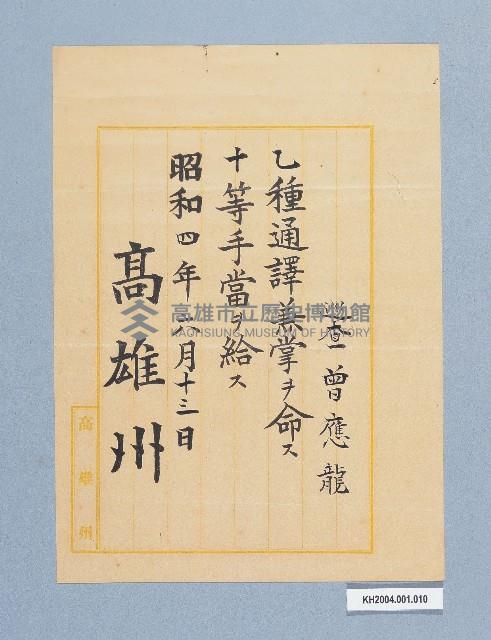 巡查 曾應龍
乙種通譯兼掌ヲ命ス
十等手當ヲ給ス
昭和四年六月十三日
高雄州
高雄州
高雄市立歷史博物館
KAOHSIUNG MUSEUM OF HISTORY
KH2004.001.010